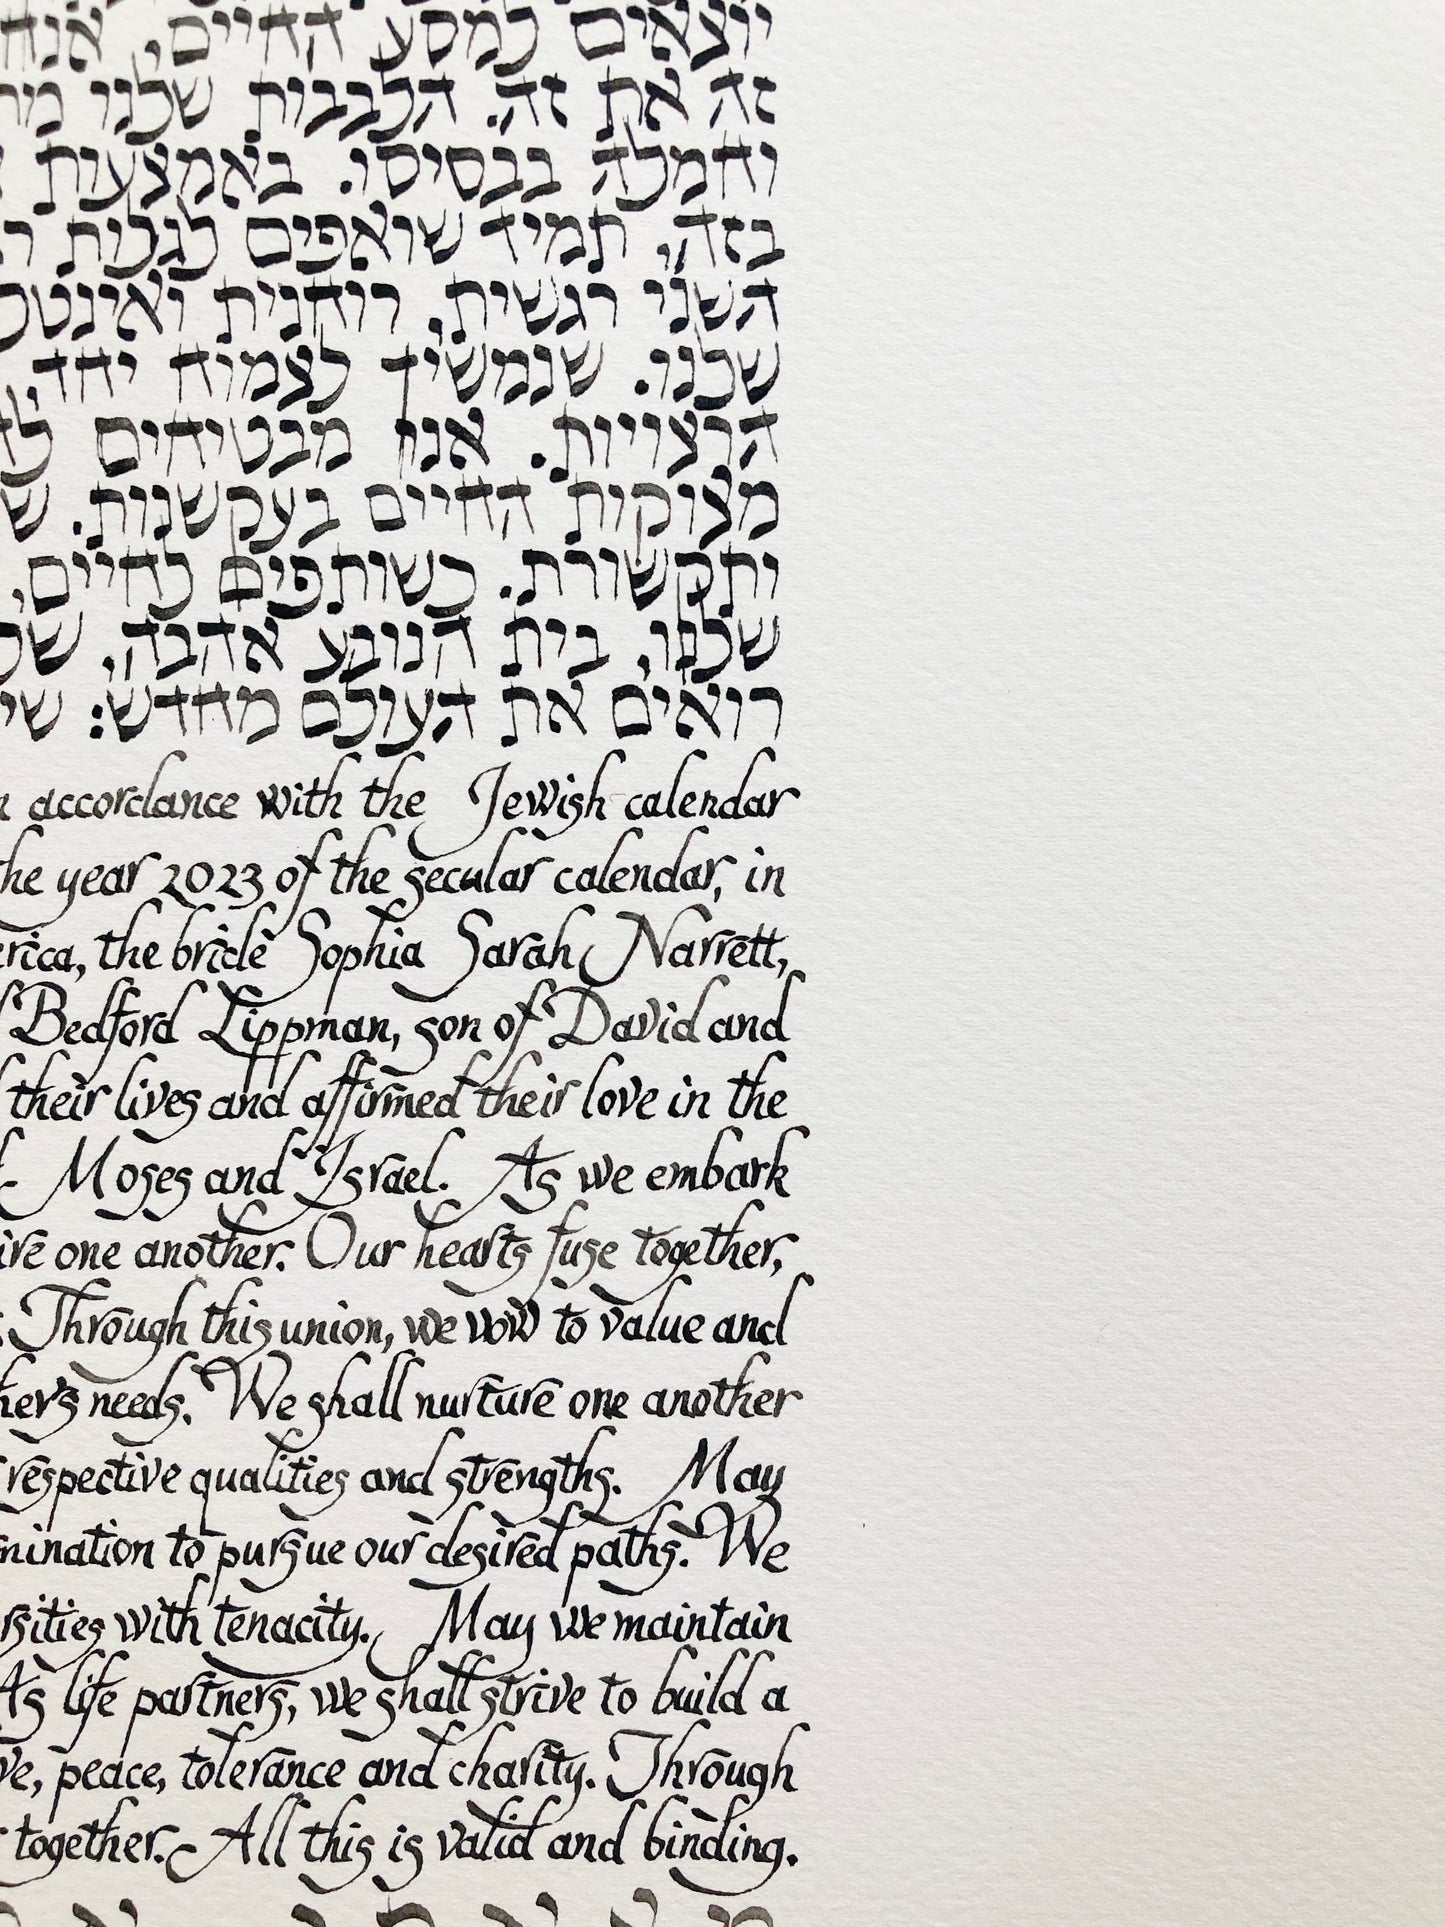 יוצאים למסע החיים, אנחנ
זה את זה. הלבבות שלנו
וחמלה בבסיסו. באמצעות
בזה, תמיד שואפים לגלות
השני רגשית, רוחנית
שלנו. שנמשיך לצמוח יחד,
הרצויות. אנו מבטיחים
מצוקות החיים בעקשנות.
ותקשורת. כשותפים לחיים,
שלנו, בית הנובע אהבה,
רואים את העולם מחדש:
accordance with the Jewish calendar
the year 2023 of the secular calendar, in
erica, the bride Sophia Sarah Narrett,
Bedford Lippman, son of David and
their lives and affirmed their love in the
Moses and Israel. As we embark
ire one another. Our hearts fuse together,
Through this union, we vow to value and
her's needs. We shall nurture one another
respective qualities and strengths. May
mination to pursue our desired paths. We
rsities with tenacity. May we maintain
As life partners, we shall strive to build a
ve, peace, tolerance and charity. Through
together. All this is valid and binding.